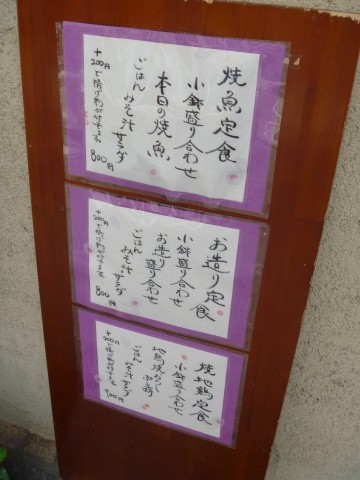 焼魚定食
小鉢盛り合わせ
本日の焼魚
ごはん みそ汁 サラダ
+200円で揚げ物が付きます。
800円
お造り定食
小鉢盛り合わせ
お造り盛り合わせ
ごはん みそ汁 サラダ
+200円で揚げ物が付きます。
800円
焼地鶏定食
小鉢盛り合わせ
ごはん みそ汁 サラダ
+200円で揚げ物が付きます。
900円